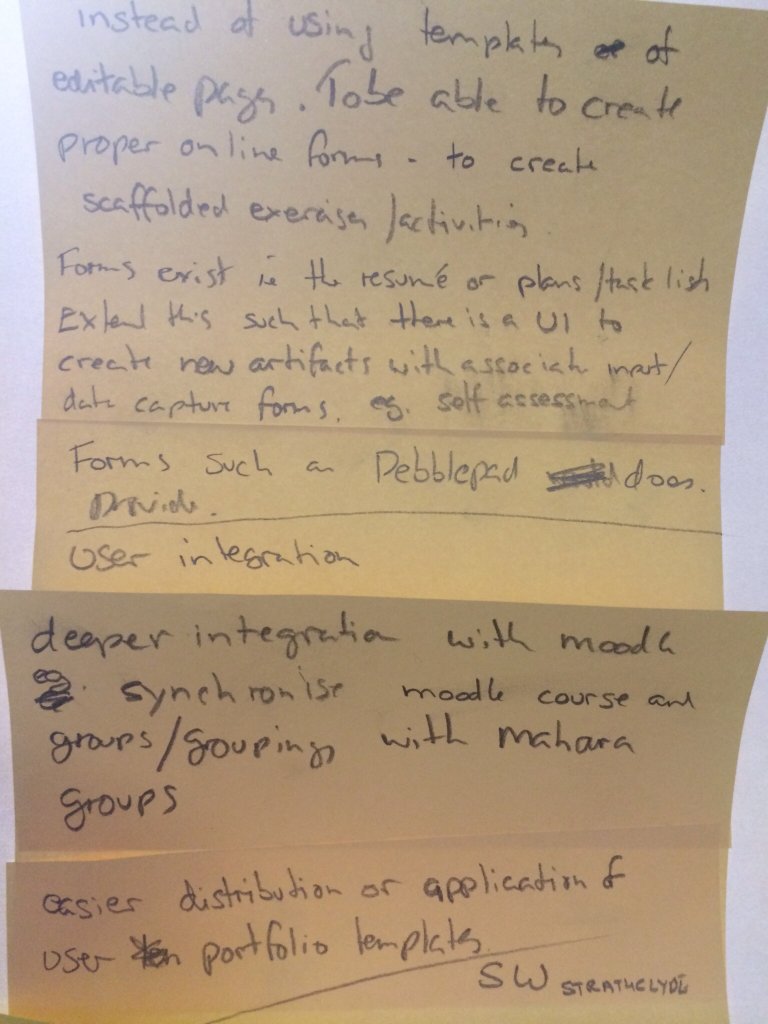 instead of using templates of
editable pages. To be able to create
proper online forms - to create
scaffolded exercises/activities.
Forms exist ie the resumé or plans/task list
Extend this such that there is a UI to
create new artifacts with associate input/
data capture forms. eg. self assessment
Forms such as Pebblepad does.
provide.
User integration
deeper integration with moodle
synchronise moodle course and
groups/groupings with mahara
groups
easier distribution or application of
user portfolio templates.
SW STRATHCLYDE